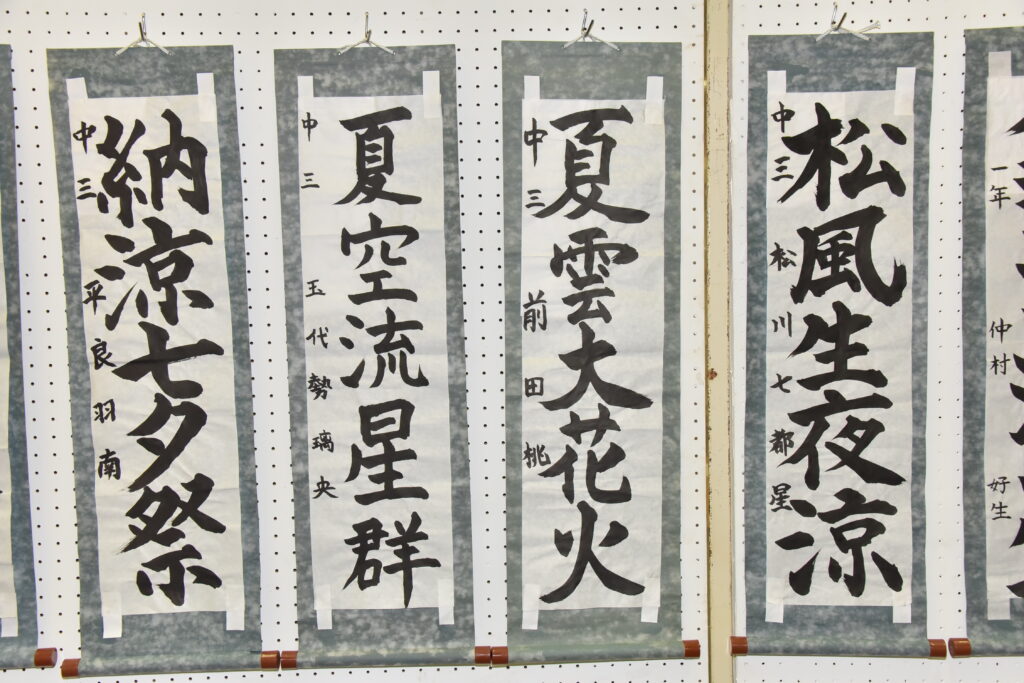 納涼七夕祭
中三 平良羽南
夏空流星群
中三 玉代勢璃央
夏雲大花火
中三 前田桃
松風生夜涼
中三 松川七都星
一年 仲村 好生